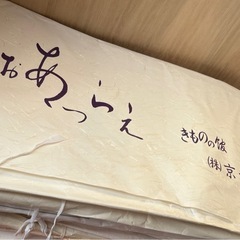 おあつらえ
きものの館
(株)京